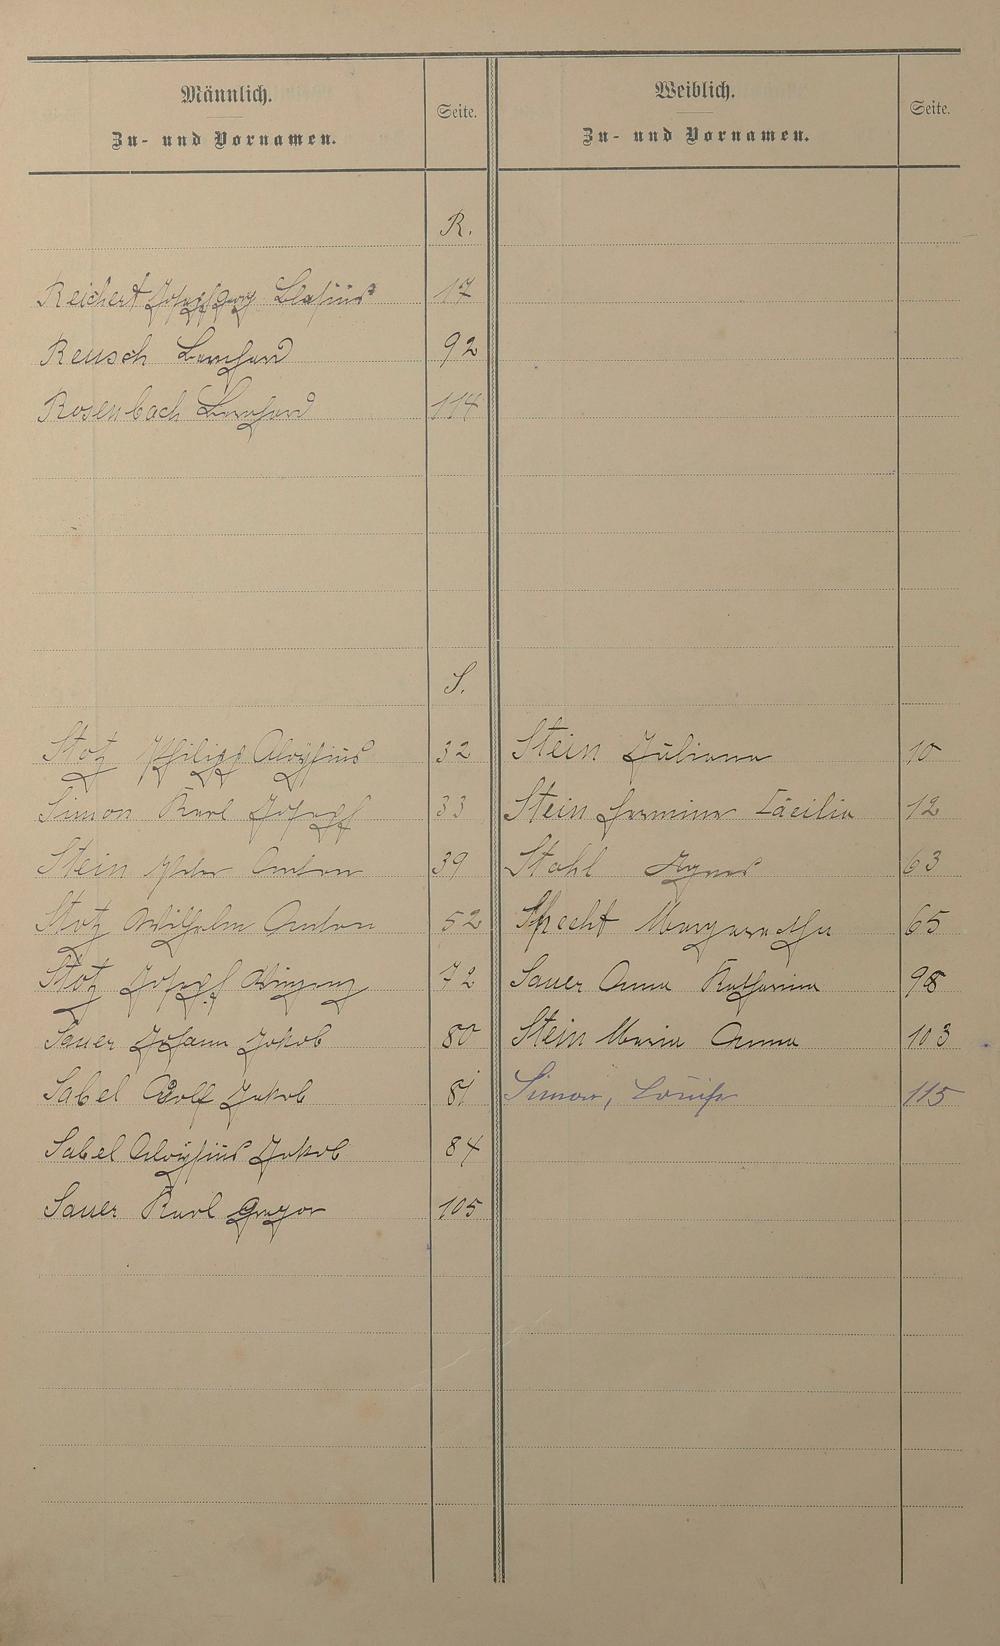 Männlich. Seite. Weiblich. Seite.
Zu- und Vornamen. Zu- und Vornamen.
R.
Reichert Josef Georg Blasius 17
Reusch Bernhard 92
Rosenbach Bernhard 114
S.
Stotz Philipp Aloÿsius 32 Stein Juliana 10
Simon Karl Joseph 33 Stein Hermine Cäcilia 12
Stein Peter Anton 39 Stahl Agnes 63
Stotz Wilhelm Anton 52 Specht Margaretha 65
Stotz Joseph Vinzenz 72 Sauer Anna Katharina 98
Sauer Johann Jakob 80 Stein Maria Anna 103
Sabel Adolf Jakob 81 Simon, Louise 115
Sabel Aloÿsius Jakob 84
Sauer Karl Gregor 105